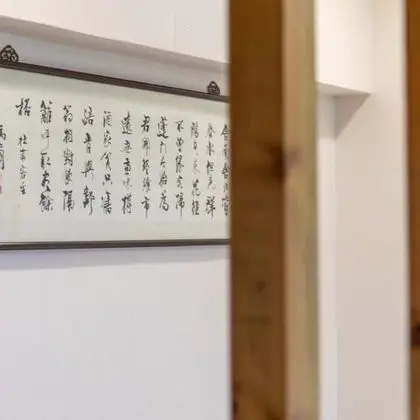 舍南舍北皆
春水但見群
鷗日日來花徑
不曾緣客掃
蓬門今始為
君開盤飧市
遠無兼味樽
酒家貧只舊
醅肯與鄰
翁相對飲隔
籬呼取盡餘
杯 杜甫客至